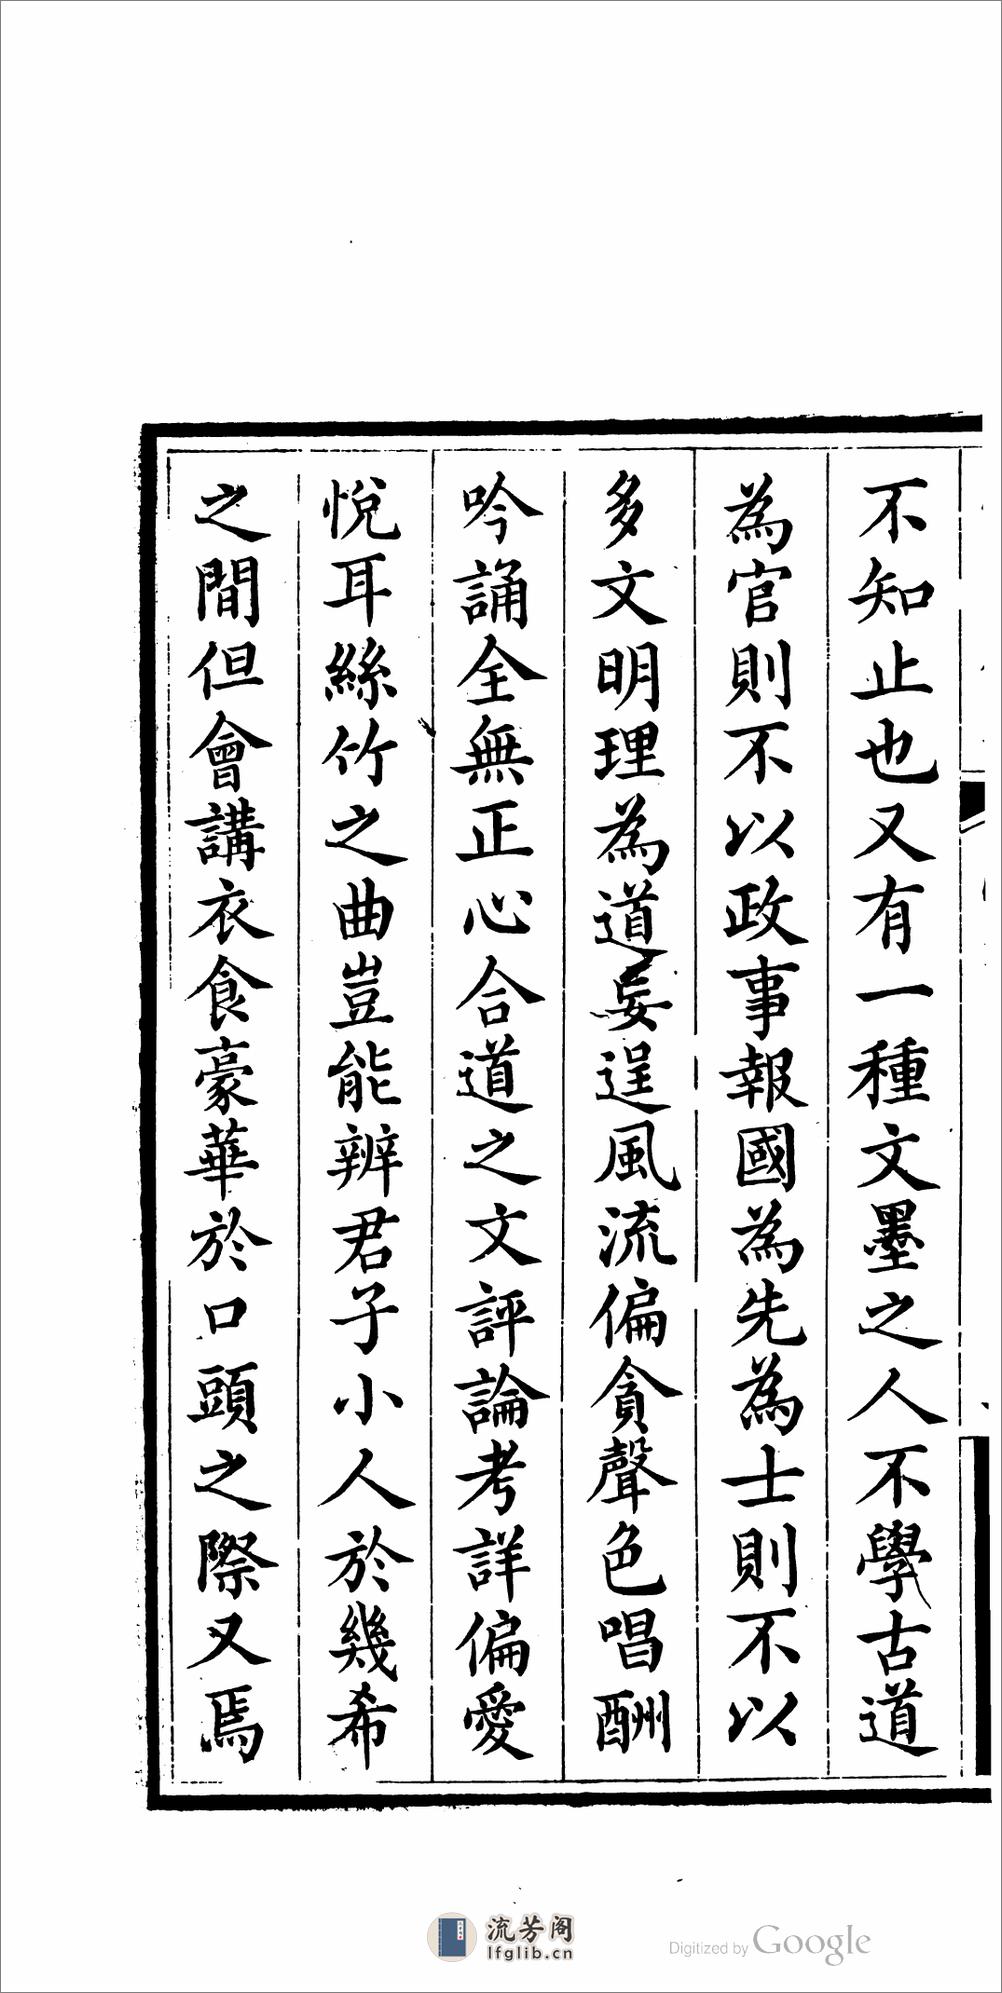 不知止也又有一種文墨之人不學古道
為官則不以政事報國為先為士則不以
多文明理為道妄逞風流偏貪聲色唱酬
吟誦全無正心合道之文評論考詳偏愛
悅耳絲竹之曲豈能辨君子小人於幾希
之間但會講衣食豪華於口頭之際又焉
流芳阁
lfglib.cn
Digitized by Google